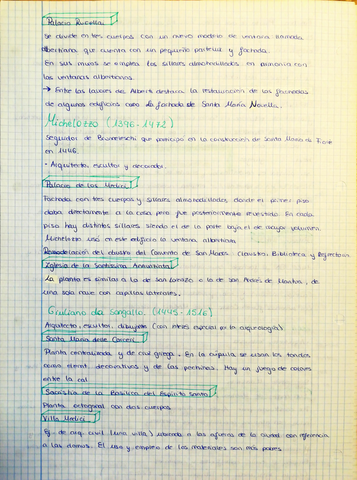 Palacio Rucellai
Se divide en tres cuerpos con un nuevo modelo de ventana llamada
albertiana que cuenta con un pequeño parteluz y fachada.
En sus muros se emplea los sillares almohadillados en armonía con
las ventanas albertianas.
→ Entre las labores de Alberti destaca la restauración de las fachadas
de algunos edificios como la fachada de Santa María Novella.
Michelozzo (1396-1472)
Seguidor de Brunelleschi que participó en la construcción de Santa María de Fiore
en 1446.
- Arquitecto, escultor y decorador.
Palacio de los Medici
Fachada con tres cuerpos y sillares almohadillados donde el primer piso
daba directamente a la calle pero fue posteriormente revestido. En cada
piso hay distintos sillares siendo el de la parte baja el de mayor volumen.
Michelozzo usó en este edificio la ventana albertiana
Remodelación del claustro del Convento de San Marcos Claustro, Biblioteca y Refectorio
Iglesia de la Santísima Annunziata
La planta es similar a la de San Lorenzo o la de San Andrés de Mantua, de
una sola nave con capillas laterales.
Giuliano da Sangallo. (1445-1516)
Arquitecto, escultor, dibujante (con interés especial en la arqueología)
Santa María delle Carceri
Planta centralizada y de cruz griega. En la cúpula se usan los tondos
como elemnt decorativos y de las pechinas. Hay un juego de colores
entre la cal
Sacristía de la Basílica del Espíritu Santo
Planta octogonal con dos cuerpos
Villa Medici
Ej. de arq. civil (una villa) ubicada a las afueras de la ciudad con referencia
a las domus. El uso y empleo de los materiales son más pobres